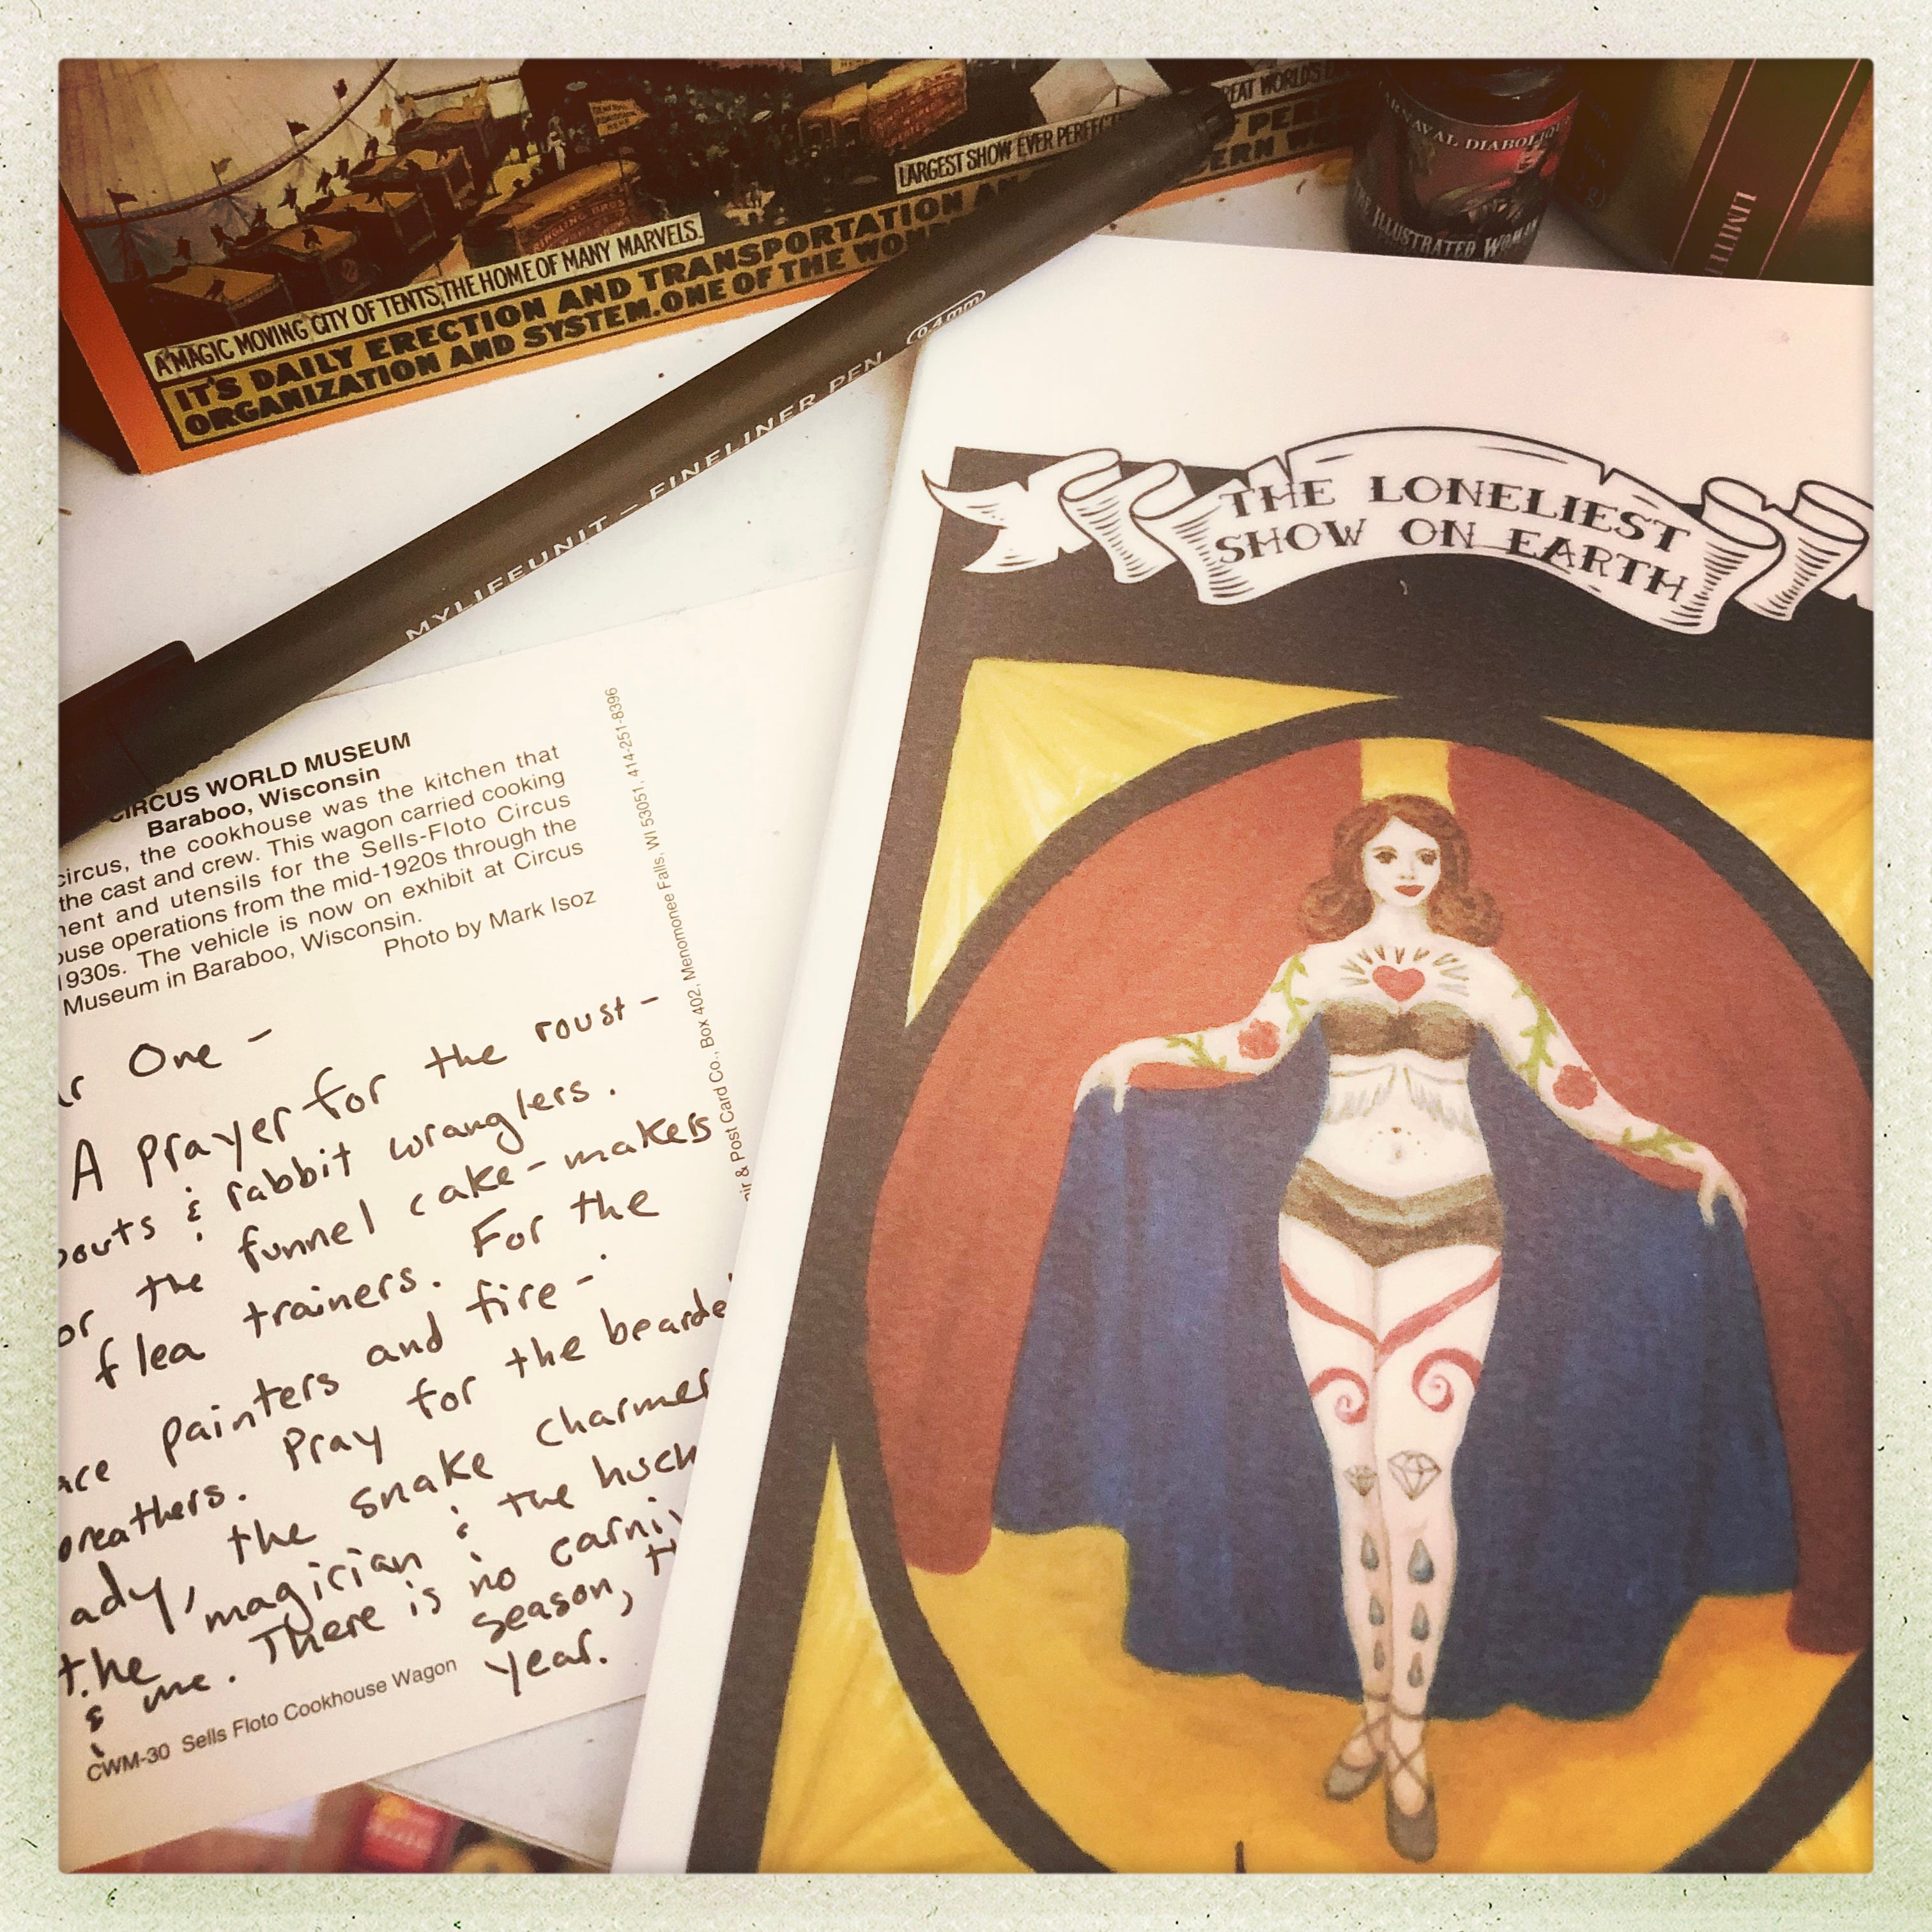 A MAGIC MOVING CITY OF TENTS, THE HOME OF MANY MARVELS.
LARGEST SHOW EVER PERFEC
IT'S DAILY ERECTION AND TRANSPORTATION AN
ORGANIZATION AND SYSTEM. ONE OF THE WON
REAT WORLD'S
PER
ERN WO
RNAVAL DIABOLIQU
THE ILLUSTRATED WOMAN
LIMITE
MYLIFEUNIT – FINELINER PEN 0.4mm
THE LONELIEST
SHOW ON EARTH
CIRCUS WORLD MUSEUM
Baraboo, Wisconsin
circus, the cookhouse was the kitchen that
the cast and crew. This wagon carried cooking
ment and utensils for the Sells-Floto Circus
ouse operations from the mid-1920s through the
1930s. The vehicle is now on exhibit at Circus
Museum in Baraboo, Wisconsin.
Photo by Mark Isoz
ir & Post Card Co., Box 402, Menomonee Falls, WI 53051, 414-251-8396
ar One -
A prayer for the roust-
bouts & rabbit wranglers.
or the funnel cake-makers
flea trainers. For the
ace painters and fire-
breathers. Pray for the bearde
ady, the snake charmer
the magician & the huck
& me. There is no carniv
season, th
year.
CWM-30 Sells Floto Cookhouse Wagon